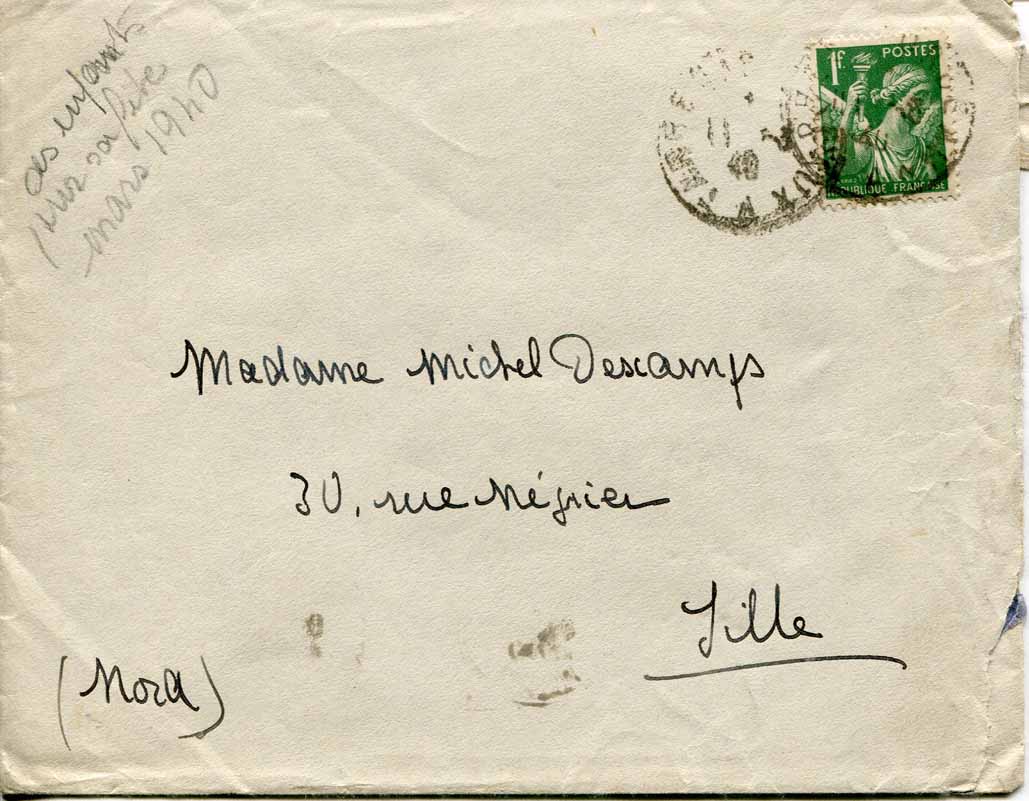 des enfants
pour sa fête
mars 1940
1F. POSTES
RÉPUBLIQUE FRANÇAISE
11
40
Madame Michel Descamps
30, rue Négrier
Lille
(Nord)